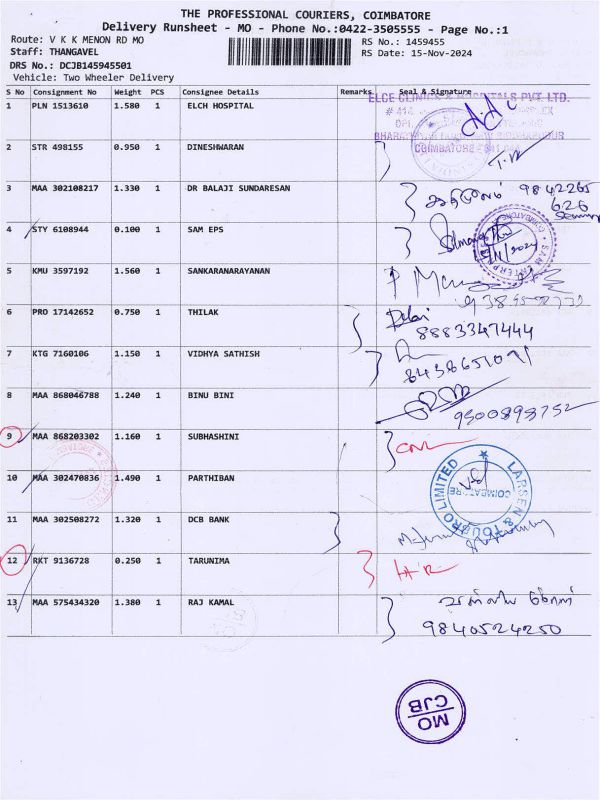 THE PROFESSIONAL COURIERS, COIMBATORE
Delivery Runsheet - MO - Phone No.:0422-3505555 - Page No.:1
Route: V K K MENON RD MO
RS No.: 1459455
Staff: THANGAVEL
RS Date: 15-Nov-2024
DRS No.: DCJB145945501
Vehicle: Two Wheeler Delivery
S No Consignment No Weight PCS Consignee Details Remarks Seal & Signature
1 PLN 1513610 1.580 1 ELCH HOSPITAL
2 STR 498155 0.950 1 DINESHWARAN
3 MAA 302108217 1.330 1 DR BALAJI SUNDARESAN
4 STY 6108944 0.100 1 SAM EPS
5 KMU 3597192 1.560 1 SANKARANARAYANAN
6 PRO 17142652 0.750 1 THILAK
8883347444
7 KTG 7160106 1.150 1 VIDHYA SATHISH
8 MAA 868046788 1.240 1 BINU BINI
9 MAA 868203302 1.160 1 SUBHASHINI
10 MAA 302470836 1.490 1 PARTHIBAN
LARSEN & TOUBRO LIMITED
COIMBATORE
11 MAA 302508272 1.320 1 DCB BANK
12 RKT 9136728 0.250 1 TARUNIMA
13 MAA 575434320 1.380 1 RAJ KAMAL
9840524250
MO
CJB